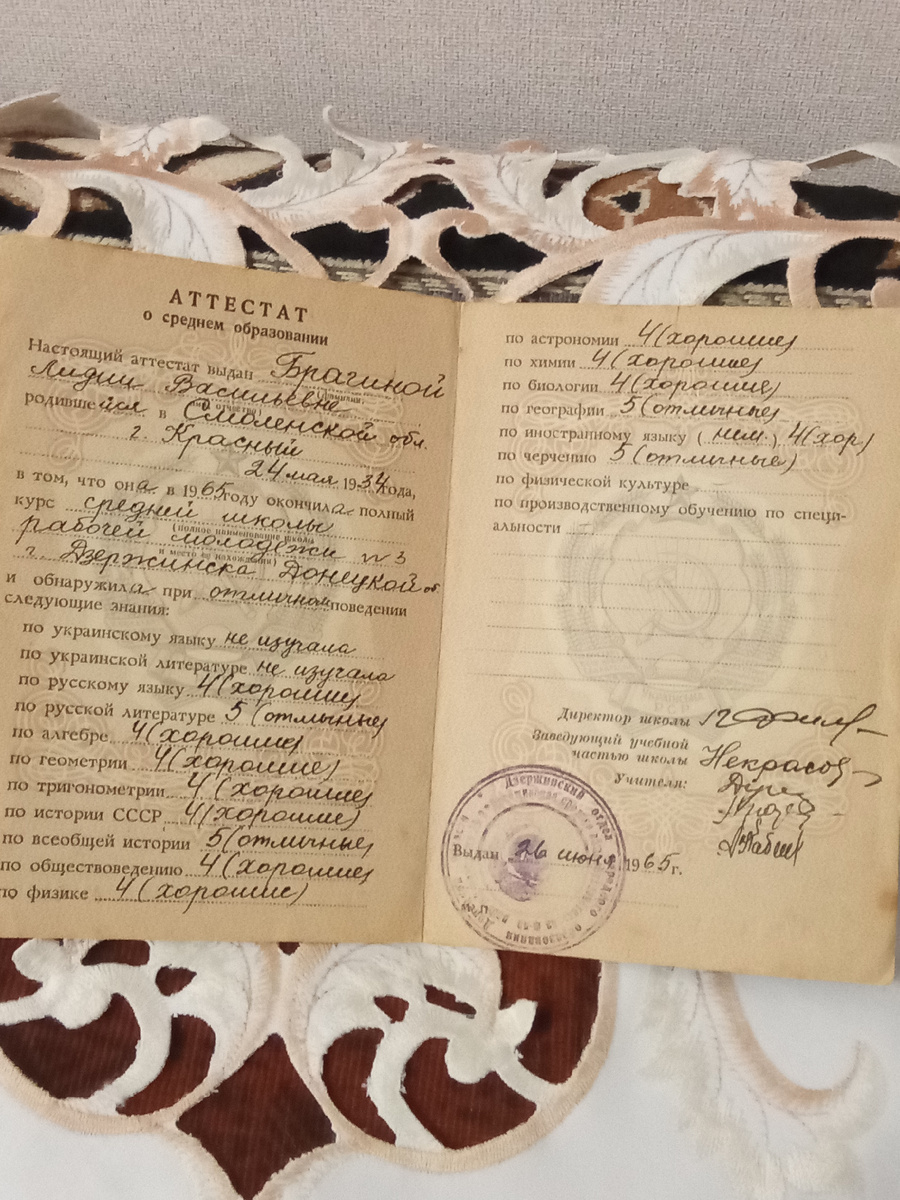 АТТЕСТАТ
о среднем образовании
Настоящий аттестат выдан Брагиной
Лидии Васильевне
родившейся в Смоленской обл.
г. Красный
24 мая 1934 года,
в том, что она в 1965 году окончила полный
курс средней школы
(полное наименование школы
рабочей молодёжи № 3
и место ее нахождения)
г. Дзержинска Донецкой об.
и обнаружила при отличном поведении
следующие знания:
по украинскому языку не изучала
по украинской литературе не изучала
по русскому языку 4 (хорошие)
по русской литературе 5 (отличные)
по алгебре 4 (хорошие)
по геометрии 4 (хорошие)
по тригонометрии 4 (хорошие)
по истории СССР 4 (хорошие)
по всеобщей истории 5 (отличные)
по обществоведению 4 (хорошие)
по физике 4 (хорошие)
по астрономии 4 (хорошие)
по химии 4 (хорошие)
по биологии 4 (хорошие)
по географии 5 (отличные)
по иностранному языку (нем.) 4 (хор)
по черчению 5 (отличные)
по физической культуре —
по производственному обучению по специ-
альности —
Директор школы
Заведующий учебной
частью школы Некрасов
Учителя:
Дзержинский отдел
народного образования
Выдан 26 июня 1965 г.